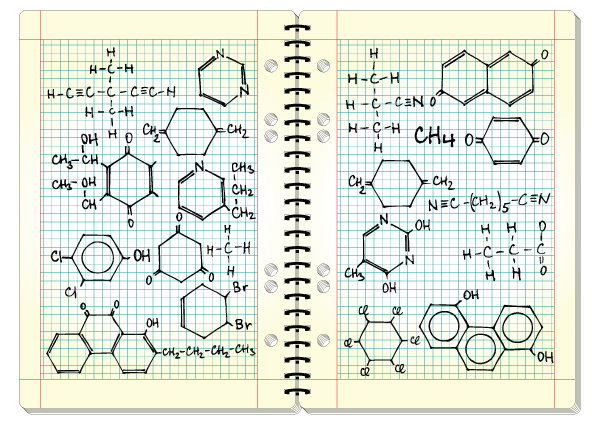 H
H-C-H
H-C≡C-C-C≡C-H
H-C-H
H
N
N
CH₂
CH₂
OH
O
CH₃-CH
CH₃-OH
CH
O
N
CH₃
CH₂
CH₂
Cl
OH
Cl
O
O
O
H
H-C-H
H
Br
Br
O
O
OH
CH₂-CH₂-CH₂-CH₃
H
H-C-H
H-C-C≡N
H-C-H
H
O
O
CH4
O
O
CH₂
CH₂
N≡C-(CH₂)₅-C≡N
N
OH
N
CH₃
OH
H H O
H-C-C-C
H H O
Cl
Cl
Cl
Cl
Cl
Cl
OH
OH